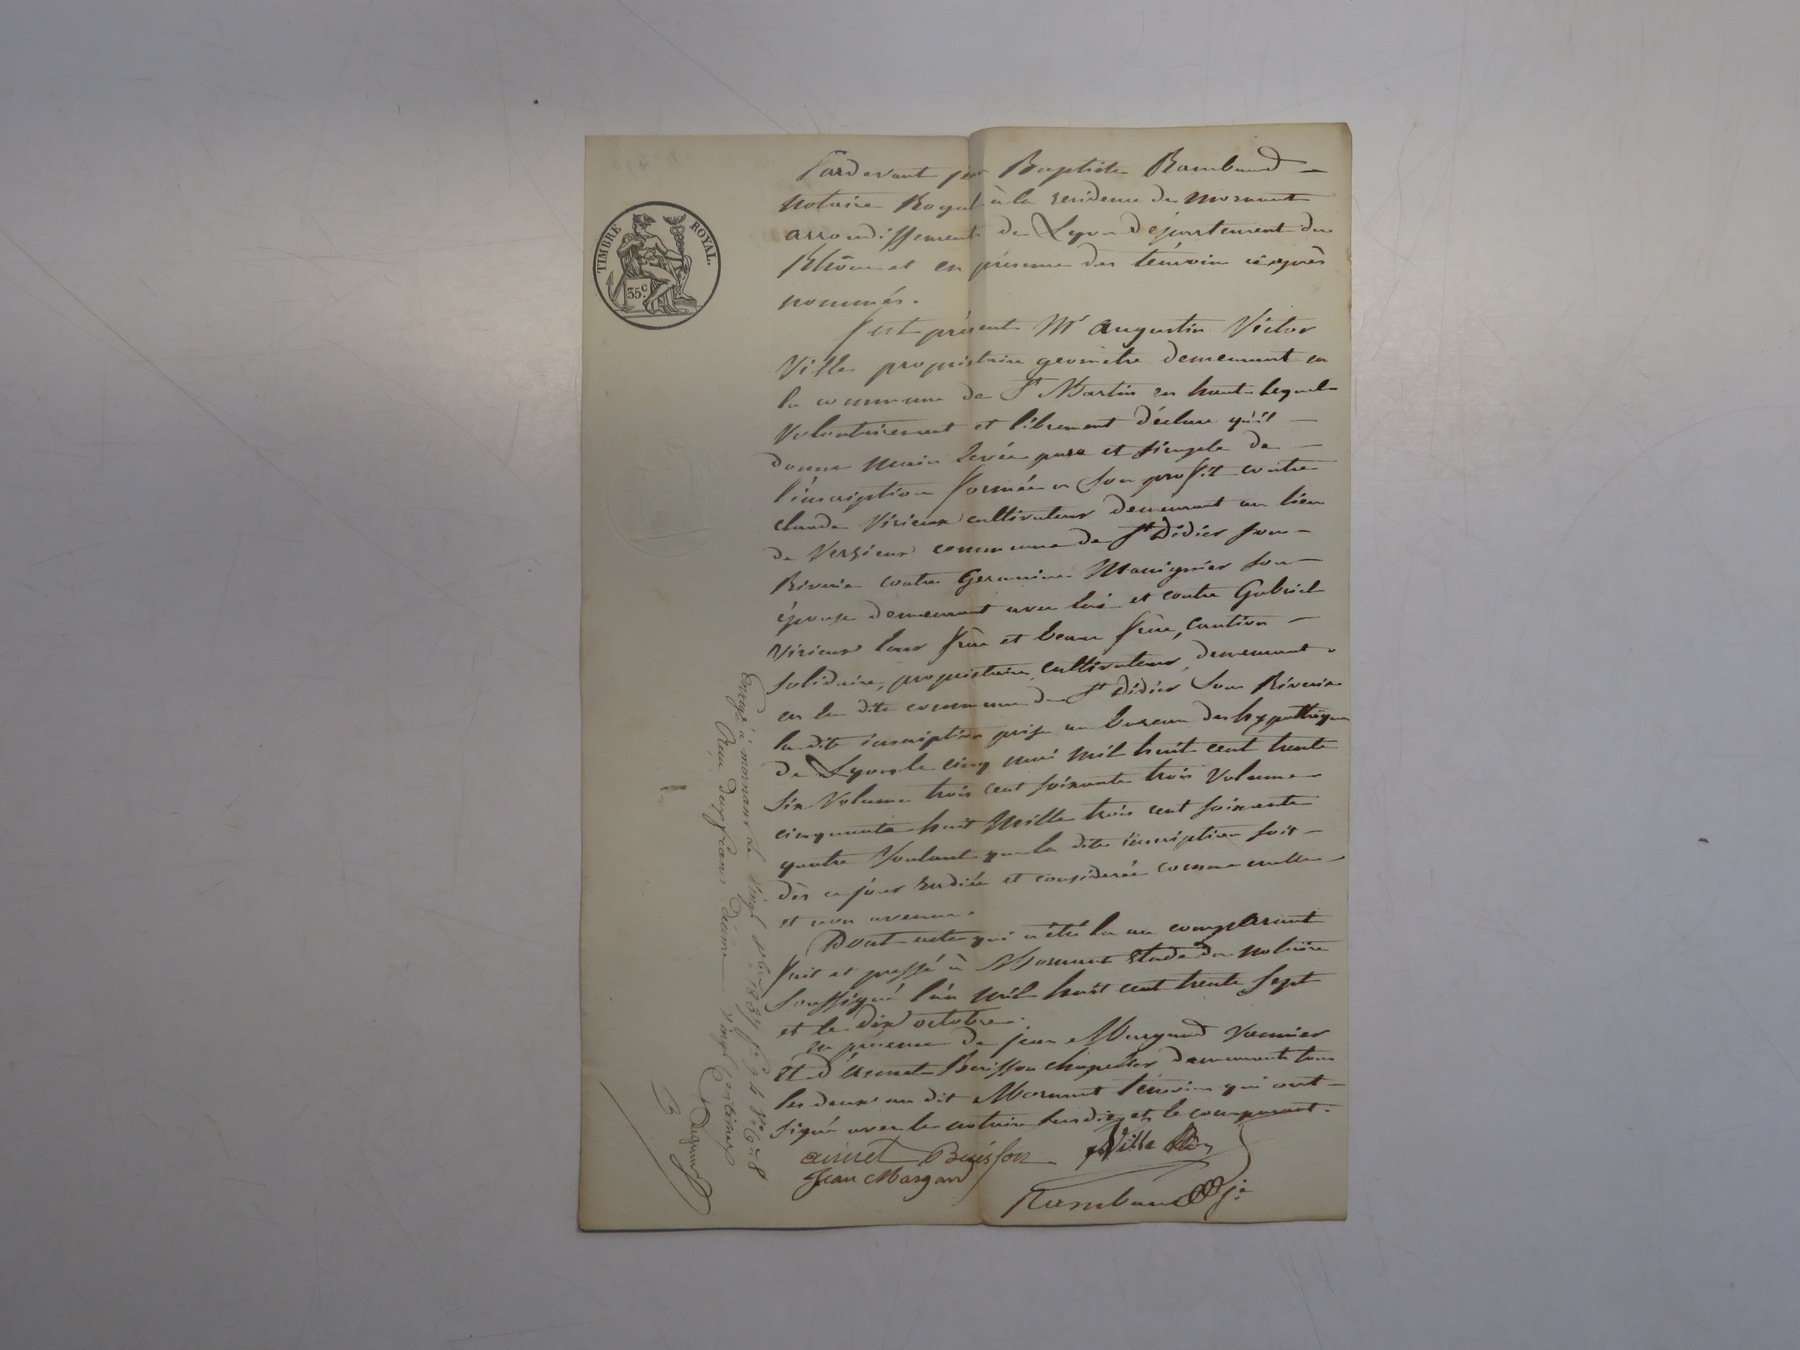 TIMBRE ROYAL.
35 c
Pardevant Baptiste Rambaud
notaire Royal à la residence de Mornant
arrondissement de Lyon département du
Rhône et en présence des témoins ci après
nommés.
fut présent Mr Augustin Victor
Ville propriétaire géomètre demeurant en
la commune de St Martin en haut lequel
volontairement et librement déclare qu'il
donne main levée pure et simple de
l'inscription formée a son profit contre
claude Virieux cultivateur demeurant au lieu
de commune de St Didier sous
Riverie contre Germaine son
épouse demeurant avec lui et contre Gabriel
Virieux leur frère et beau frère, caution
solidaire, propriétaire cultivateur, demeurant
en la dite commune de St Didier sous Riverie
la dite inscription prise au bureau des hypothèques
de Lyon le cinq mai mil huit cent trente
six Volume trois cent soixante trois Volume
cinquante huit mille trois cent soixante
quatre Voulant que la dite inscription soit
dès ce jour radiée et considérée comme nulle
et non avenue.
Dont acte qui a été lu au comparant
fait et passé à Mornant étude du notaire
soussigné l'an mil huit cent trente sept
et le dix octobre.
en présence de jean Margand
et d'aimet Buisson demeurants tous
les deux au dit Mornant témoins qui ont
signé avec le notaire susdit et le comparant.
aimet Buisson Ville
Jean Margand
Rambaud
Enregé à mornant le vingt 8bre 1837 fo
Reçu deux francs décime vingt centimes